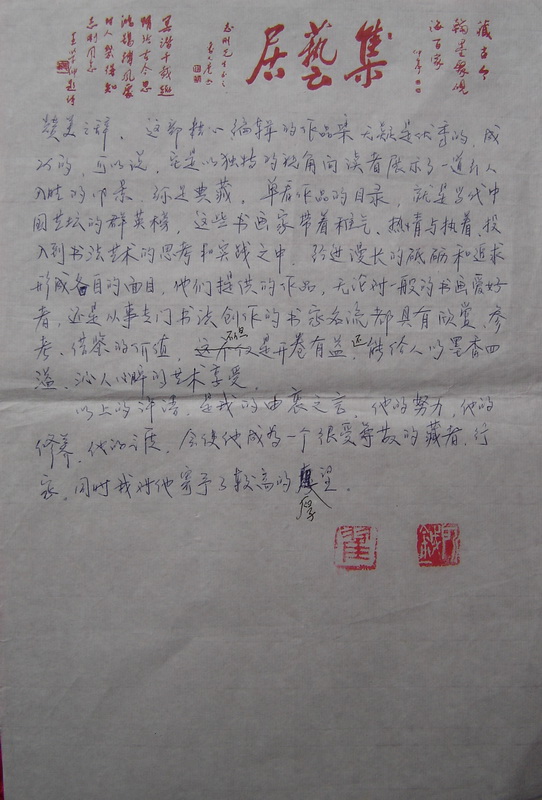 集藝居
藏古今
翰墨
百家
赞美之辞。这部批心编辑的作品集无疑是优秀的,成
功的,可以说,它是以独特的视角向读者展示了一道引人
入胜的风景,弥足典藏。单看作品的目录,就是当代中
国艺坛的群英榜,这些书画家带着稚气、热情与执着,投
入到书法艺术的思考和实践之中。经过漫长的砥砺和追求
形成各自的面目,他们提供的作品,无论对一般的书画爱好
者,还是从事专门书法创作的书家名流都具有欣赏、参
考、借鉴的价值,不但是开卷有益,还能给人以墨香四
溢、沁人心脾的艺术享受。
以上的评语,是我的由衷之言。他的努力,他的
修养,他的,会使他成为一个很受尊敬的藏者、行
家,同时我对他寄予了较高的厚望。